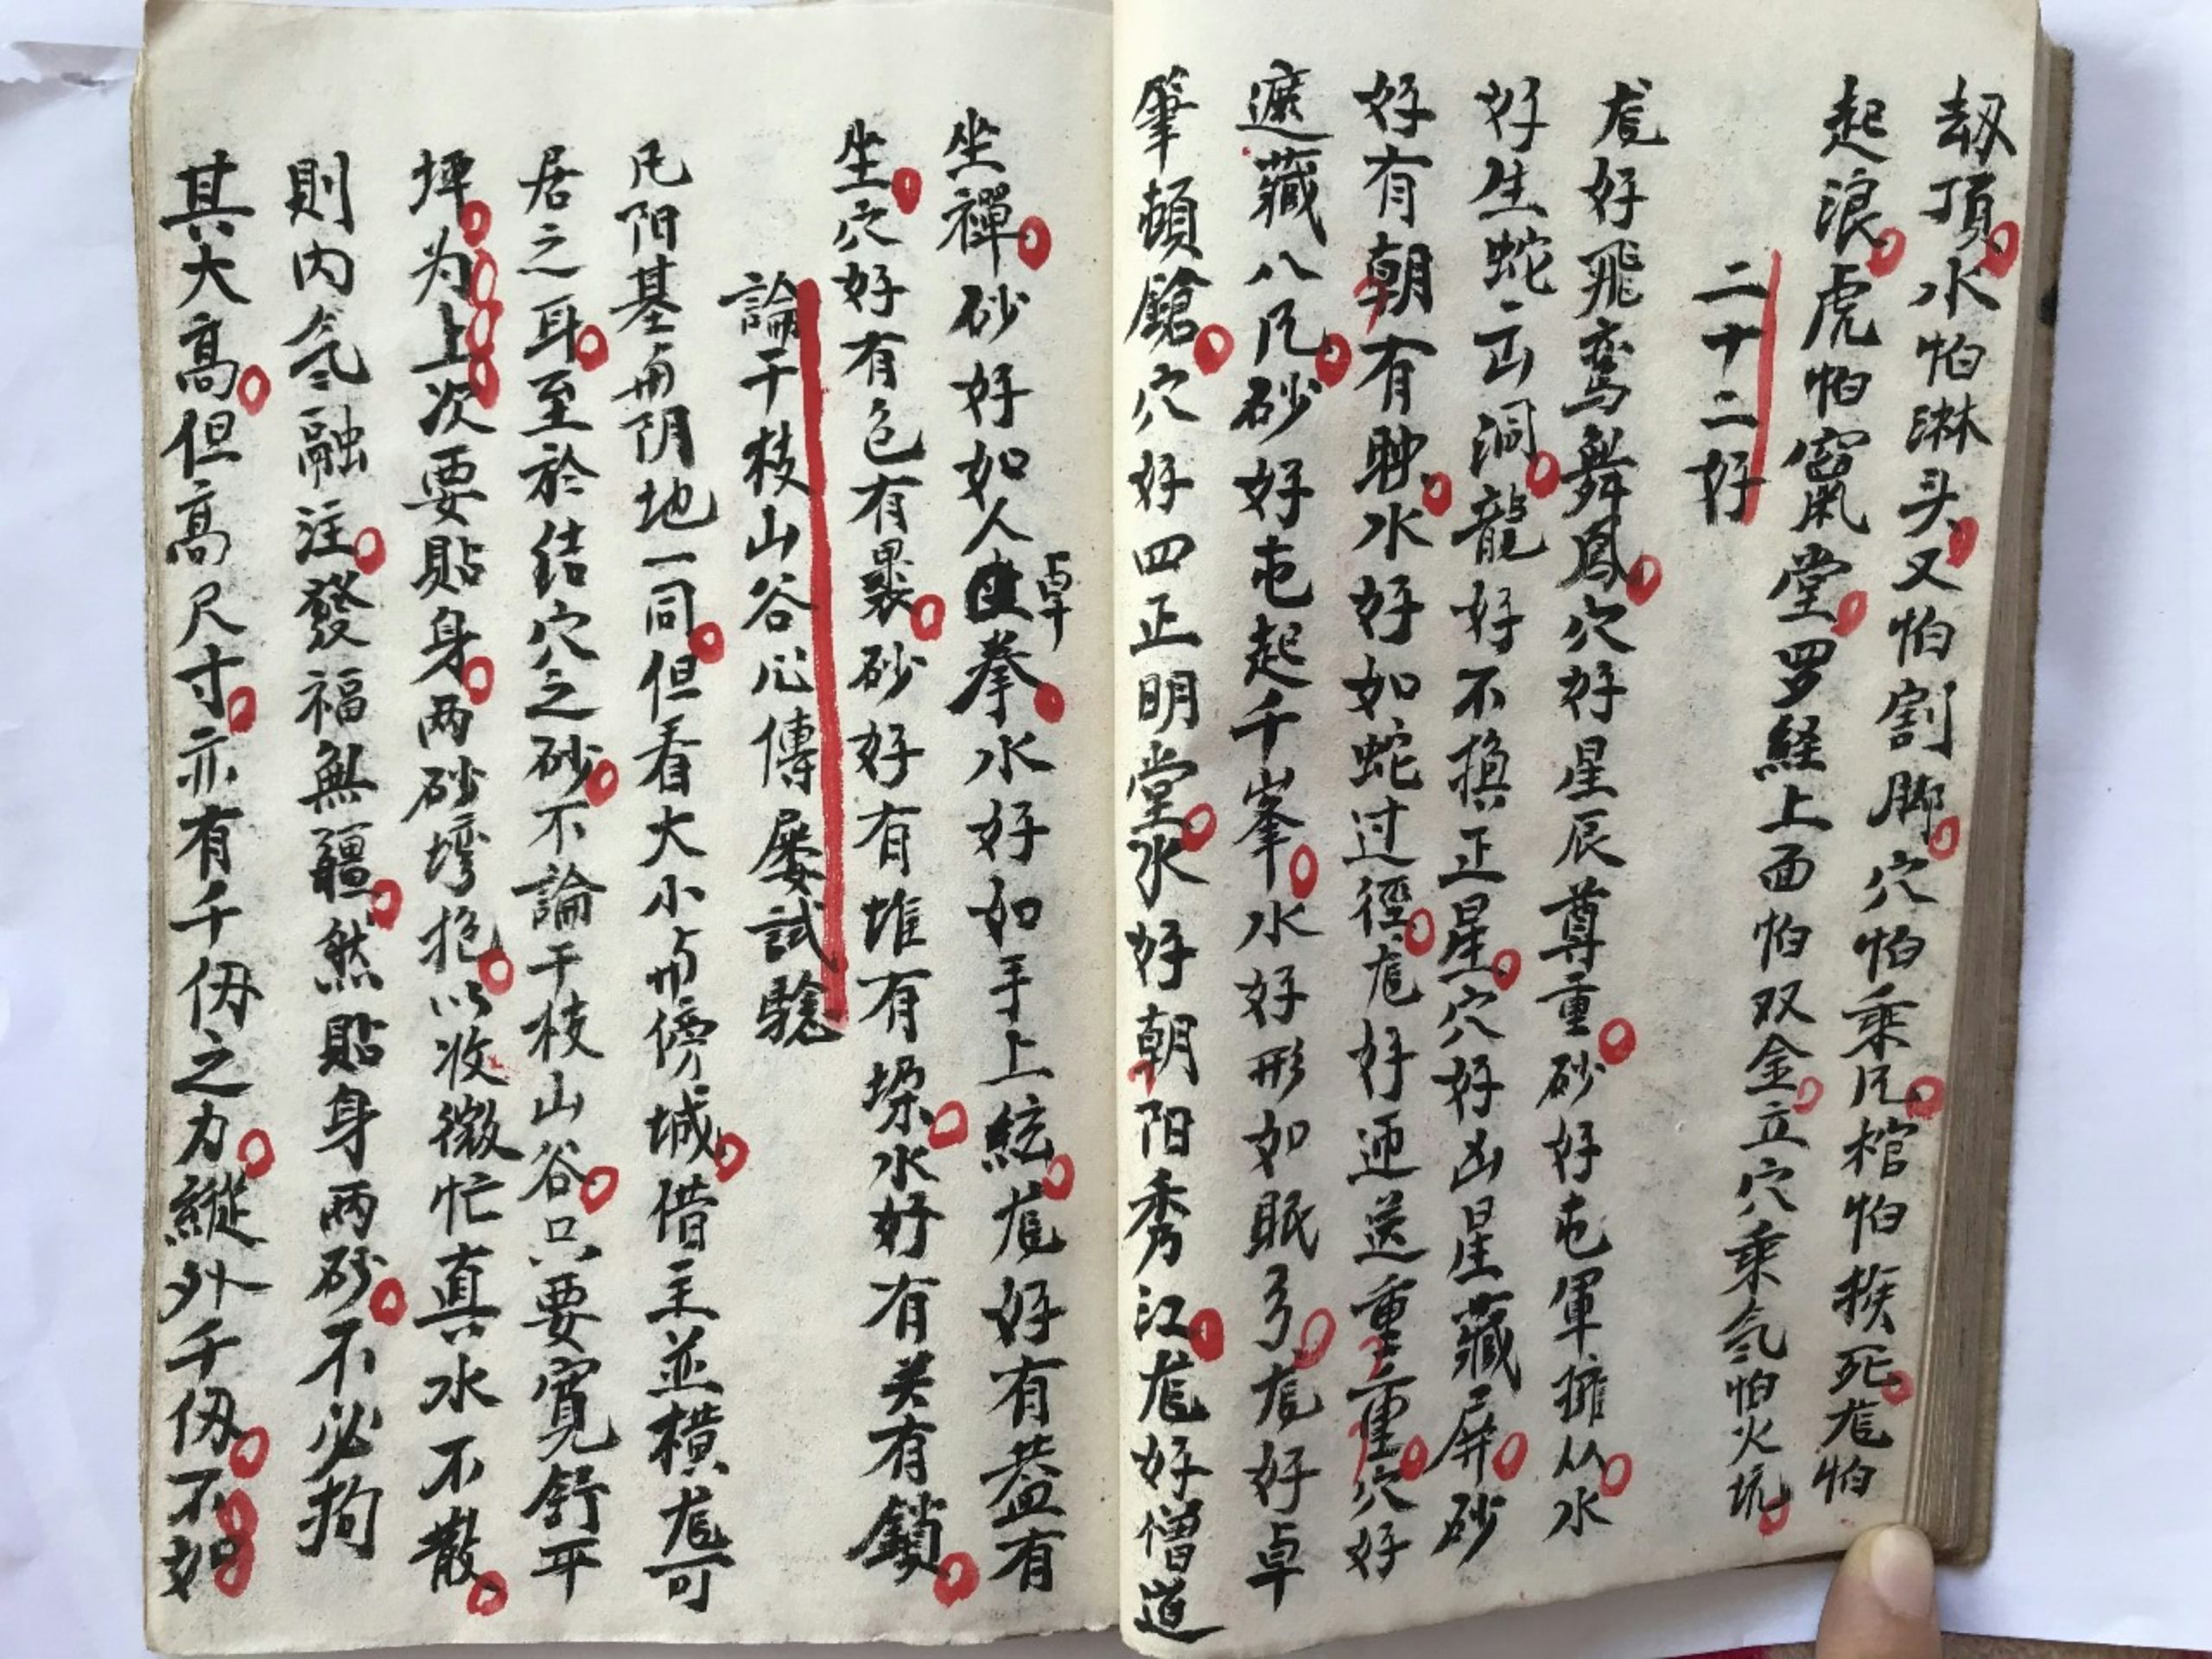 劫頂水怕淋头又怕割脚穴怕乘风棺怕挨死龙怕
起浪虎怕窜堂罗経上面怕双金立穴乘气怕火坑
二十二好
龙好飛鸾舞鳳穴好星辰尊重砂好屯軍擁从水
好生蛇出洞龍好不換正星穴好凶星藏屏砂
好有朝有水好如蛇过徑龙好迎送重重穴好
遮藏八风砂好屯起千峯水好形如眠弓龙好卓
筆頓鎗穴好四正明堂水好朝阳秀江龙好僧道
坐禪砂好如人卓拳水好如手上絃龙好有盖有
坐穴好有包有裹砂好有堆有垛水好有关有鎖
論干枝山谷心傳屡試驗
凡阳基与阴地一同但看大小与傍城借主並横龙可
居之耳至於结穴之砂不論干枝山谷只要寬舒平
坪为上次要貼身两砂塆抱以收微忙真水不散
則内气融注發福無疆然貼身两砂不必拘
其大高但高尺寸亦有千仭之力縱外千仭不如